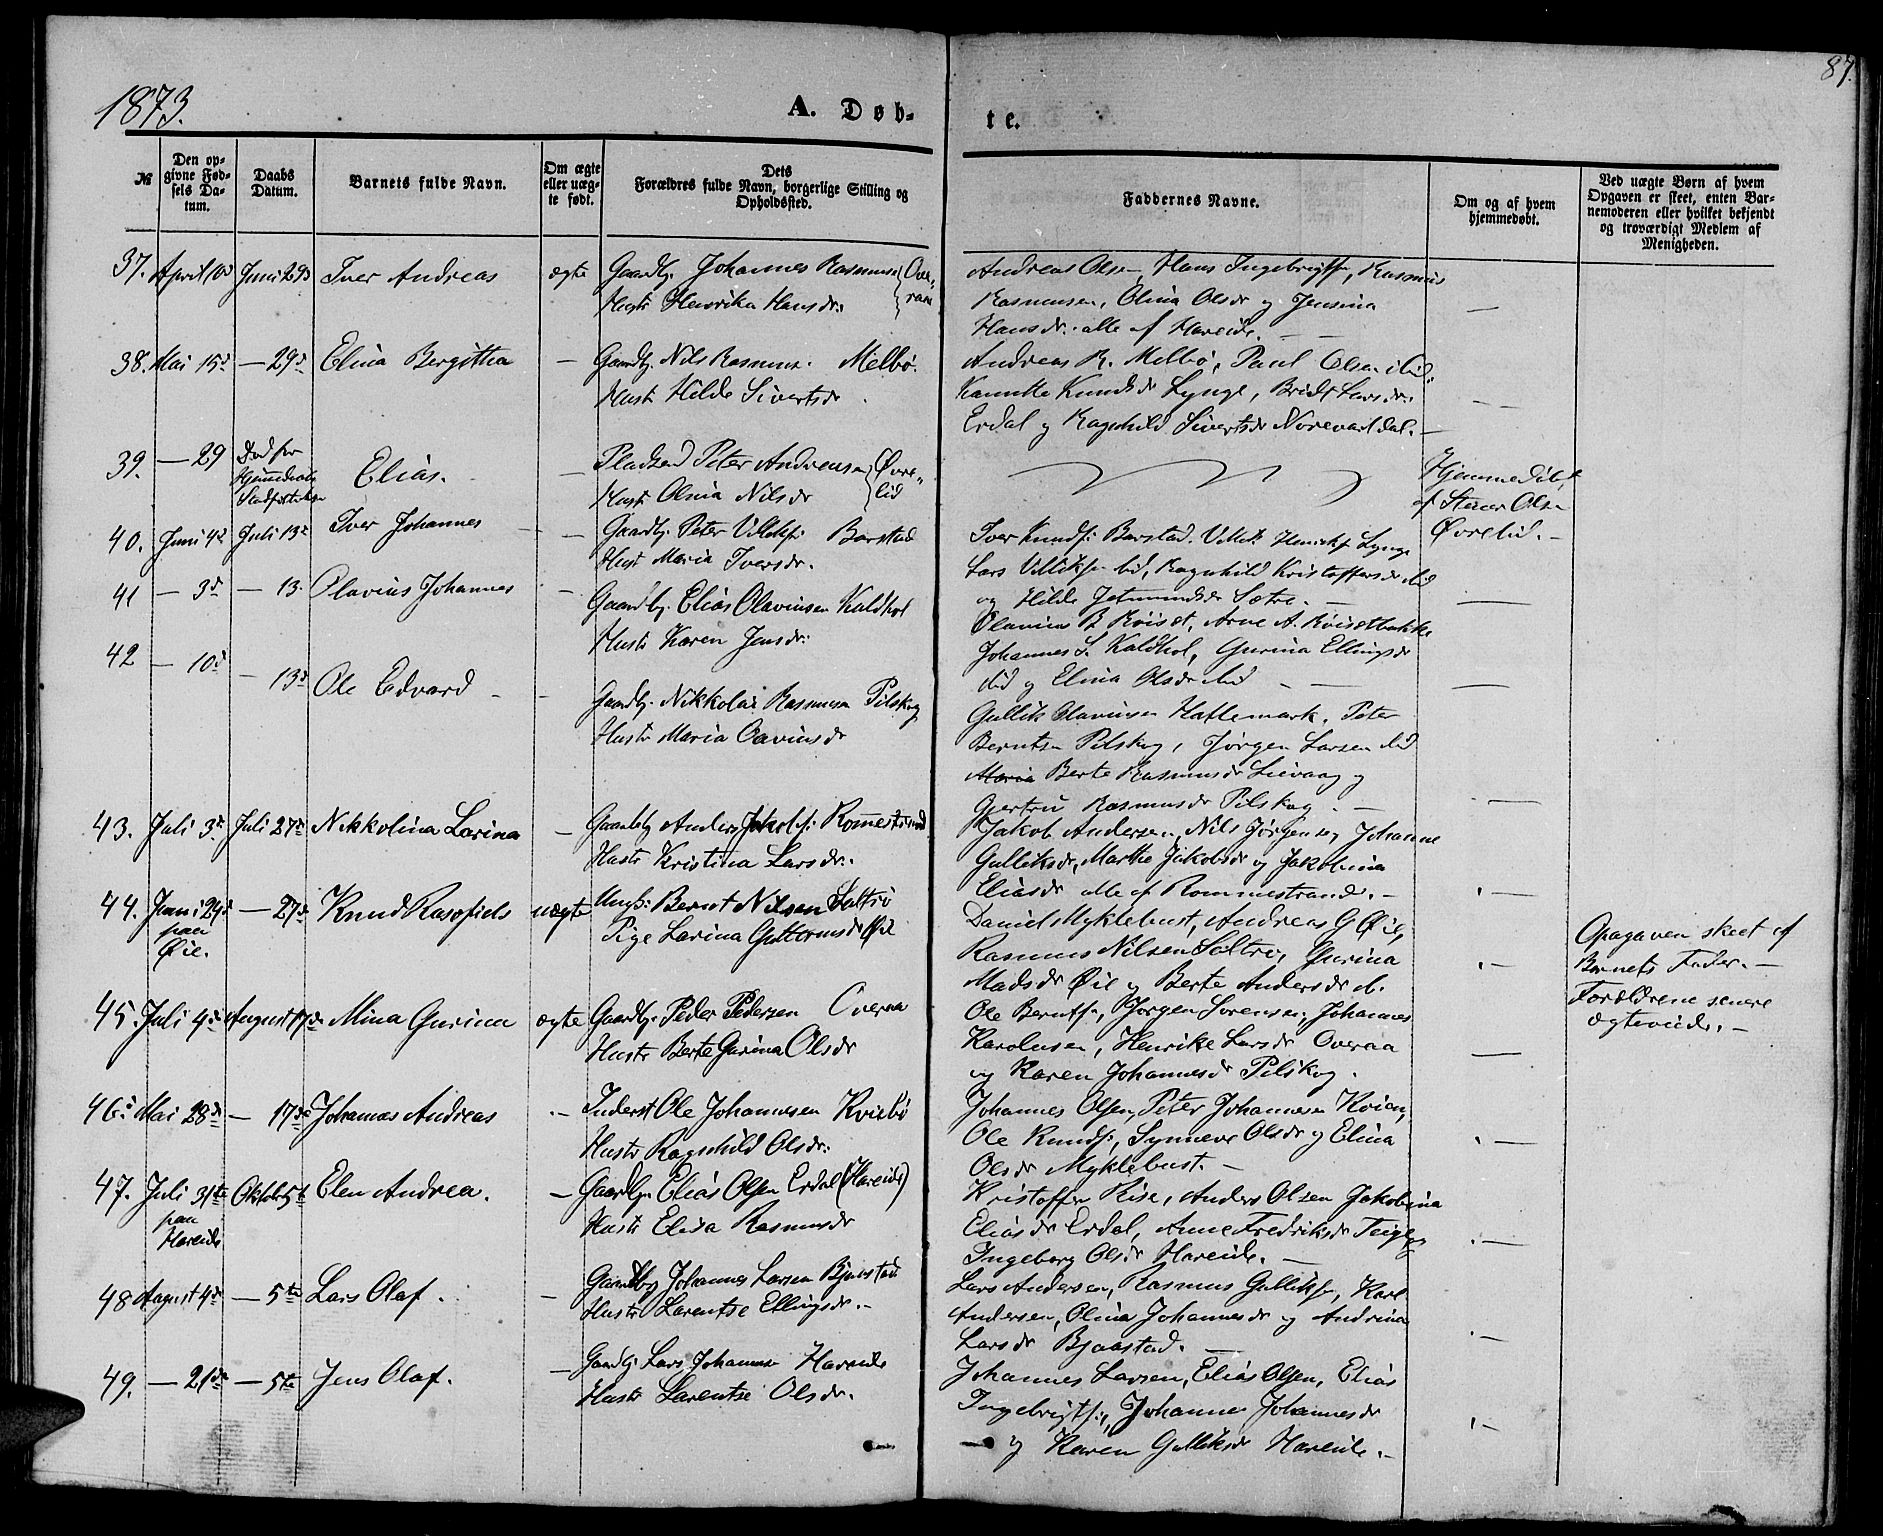 1873.
A. Døb-
te.
87.
№
Den op-
givne Fød-
sels Da-
tum.
Daabs
Datum.
Barnets fulde Navn.
Om ægte
eller uæg-
te født.
Dets
Forældres fulde Navn, borgerlige Stilling og
Opholdssted.
Faddernes Navne.
Om og af hvem
hjemmedøbt.
Ved uægte Børn af hvem
Opgaven er skeet, enten Bar-
nemoderen eller hvilket bekjendt
og troværdigt Medlem af
Menigheden.
37. April 10d Juni 29d Iver Andreas ægte Gaardbr. Johannes Rasmusen Ove-
raa
Hustr Henrika Hansdr:
Andreas Olsen, Hans Ingebrigtsn, Rasmus
Rasmusen, Olina Olsdr og Jensina
Hansdr. alle af Hareide. —
38. Mai 15d — 29d Elina Bergitha — Gaardbr. Nils Rasmusn. Melbö.
Hustr Hilde Sivertsdr.
Andreas R. Melbö, Paul Olsen Lid,
Kanutte Knudsdr Lynge, Larsdr.
Erdal og Ragnhild Sivertsdr
39. — 29 Död før
Elias. — Pladsm Peter Andreasen Øvre-
lid
Hustr Olina Nilsdr
Hjemmedöbt
af Stener Olsn
Øvrelid. —
40. Juni 4d Juli 13d Iver Johannes — — Gaardbr. Peter Villiksn: Barstad
Hustr Maria Iversdr.
Iver Knudsn: Barstad. Henriksn Lynge
Lars Villiksn Lid, Ragnhild Kristoffersdr Lid
og Hilde Jetmundsdr Sætre. —
41 — 3d — 13. Olavius Johannes — Gaardbr. Elias Olaviusen Kaldhol
Hustr Karen Jensdr:
Olavius B. Röiset, Arne A. Röisetbakke
Johannes S. Kaldhol, Gurina Ellingsdr
Lid og Elina Olsdr Lid — —
42 — 10d — 13d Ole Edvard — — Gaardbr. Nikkolai Rasmusen Pilskog
Hustr Maria Oavinsdr
Gullik Olavinsen Hatlemark. Peter
Berntsn Pilskog, Jørgen Larsen Lid
Maria Berte Rasmusdr Lievaag og
Gjertru Rasmusdr Pilskog. —
43. Juli 3d Juli 27d Nikkolina Lovina — Gaardbr Anders Jakobsn: Rommestrand
Hustr Kristina Larsdr:.
Jakob Andersen, Nils Jörgensen, Johanne
Gulliksdr, Marthe Jakobsdr og Jakobina
Eliasdr alle af Rommestrand. —
44. Juni 29d — 27d Knud uægte Ungk: Bernt Nilsen Saltrö
paa
Øie.
Pige Larina Guttormsdr Øie
Daniel Myklebust, Andreas G Øie,
Rasmus Nilsen Saltrö, Gurina
Madsdr Øie og Berte Andersdr
Opagaven skeet af
Barnets Fader. —
Forældrene senere
ægteviede. —
45. Juli 4d August 17d Mina Gurina ægte Gaardbr. Peder Pedersen Overaa
Hustr Berte Gurina Olsdr
Ole Berntsn, Jörgen Sörensen, Johannes
Karolusen, Henrike Larsdr Overaa
og Karen Johannesdr Pilskog.
46. Mai 28d — 17d Johannes Andreas — Inderst Ole Johannesen Kviebö
Hustr Ragnhild Olsdr:
Johannes Olsen, Peter Johannesen Kvien,
Ole Knudsn:, Synneve Olsdr og Elina
Olsdr Myklebust. —
47. Juli 31te Oktob. 5t Elen Andrea. — Gaardbr. Elias Olsen Erdal (Hareide)
paa
Hareide
Hustr Elisa Rasmusdr
Kristoffer Rise, Anders Olsen Jakobina
Eliasdr Erdal, Anne Fredriksdr Teige og
Ingeborg Olsdr Hareide. —
48 August 4d — 5te Lars Olaf. — Gaardbr Johannes Larsen Bjaastad
Hustr Larentse Ellingsdr. —
Lars Andersen, Rasmus Gulliksn, Karl
Andersen, Olina Johannesdr og Andrina
Larsdr Bjaastad. —
49. — 21de — 5te Jens Olaf. — Gaardbr. Lars Johannesn Hareide
Hustr Larentse Olsdr.
Johannes Larsen, Elias Olsen, Elias
Ingebrigtsn:, Johanne Johannesdr
og Karen Gulliksdr Hareide. —